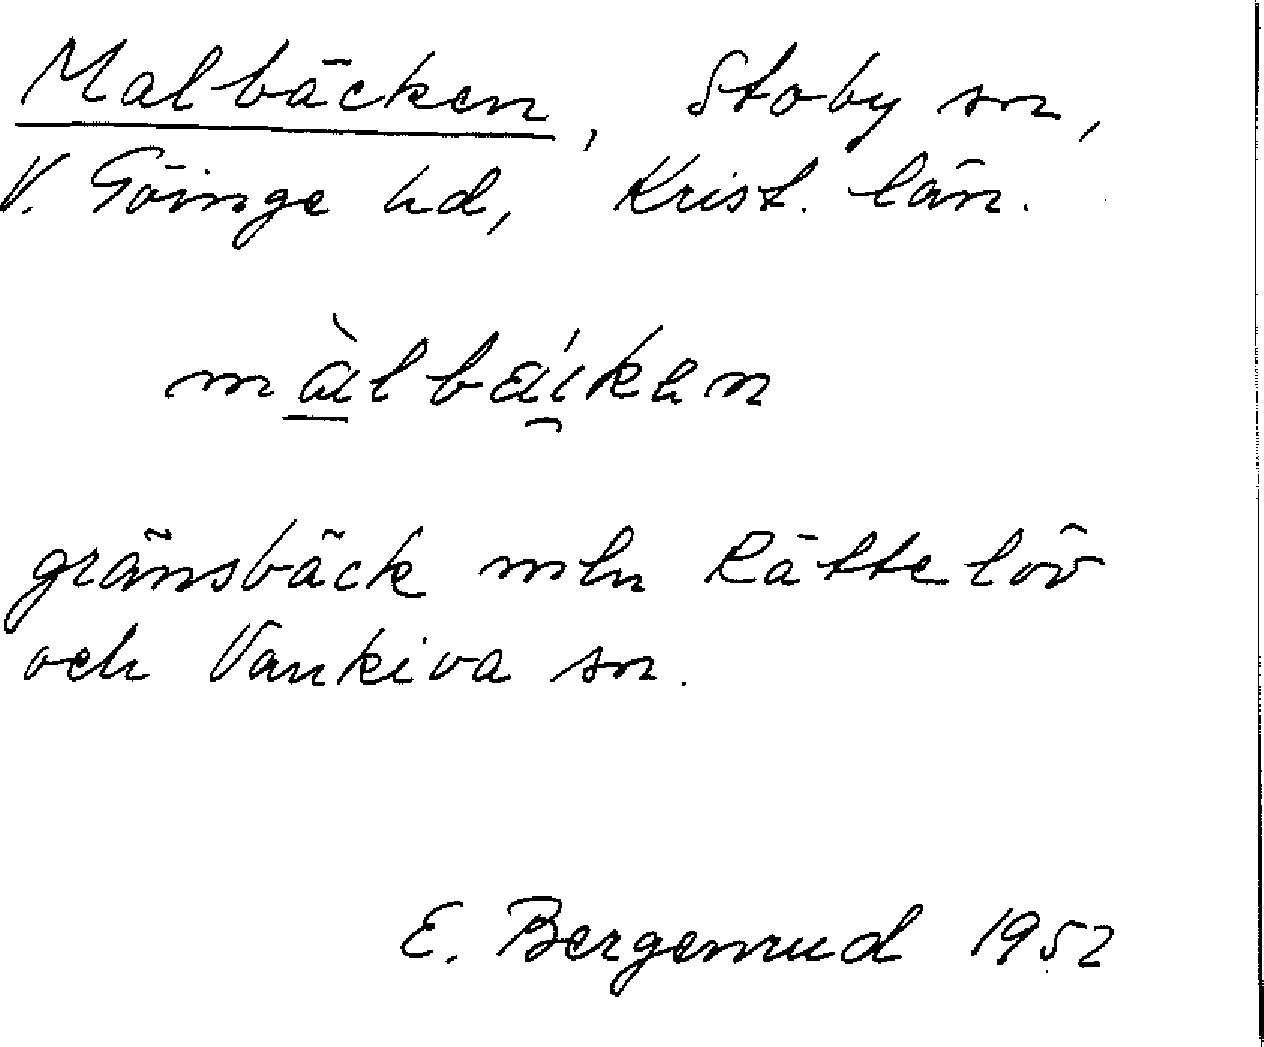 Malbäcken, Stoby sn,
V. Göinge hd, Krist. län.
màlbáikən
gränsbäck mln Rättelöv
och Vankiva sn.
E. Bergenrud 1952